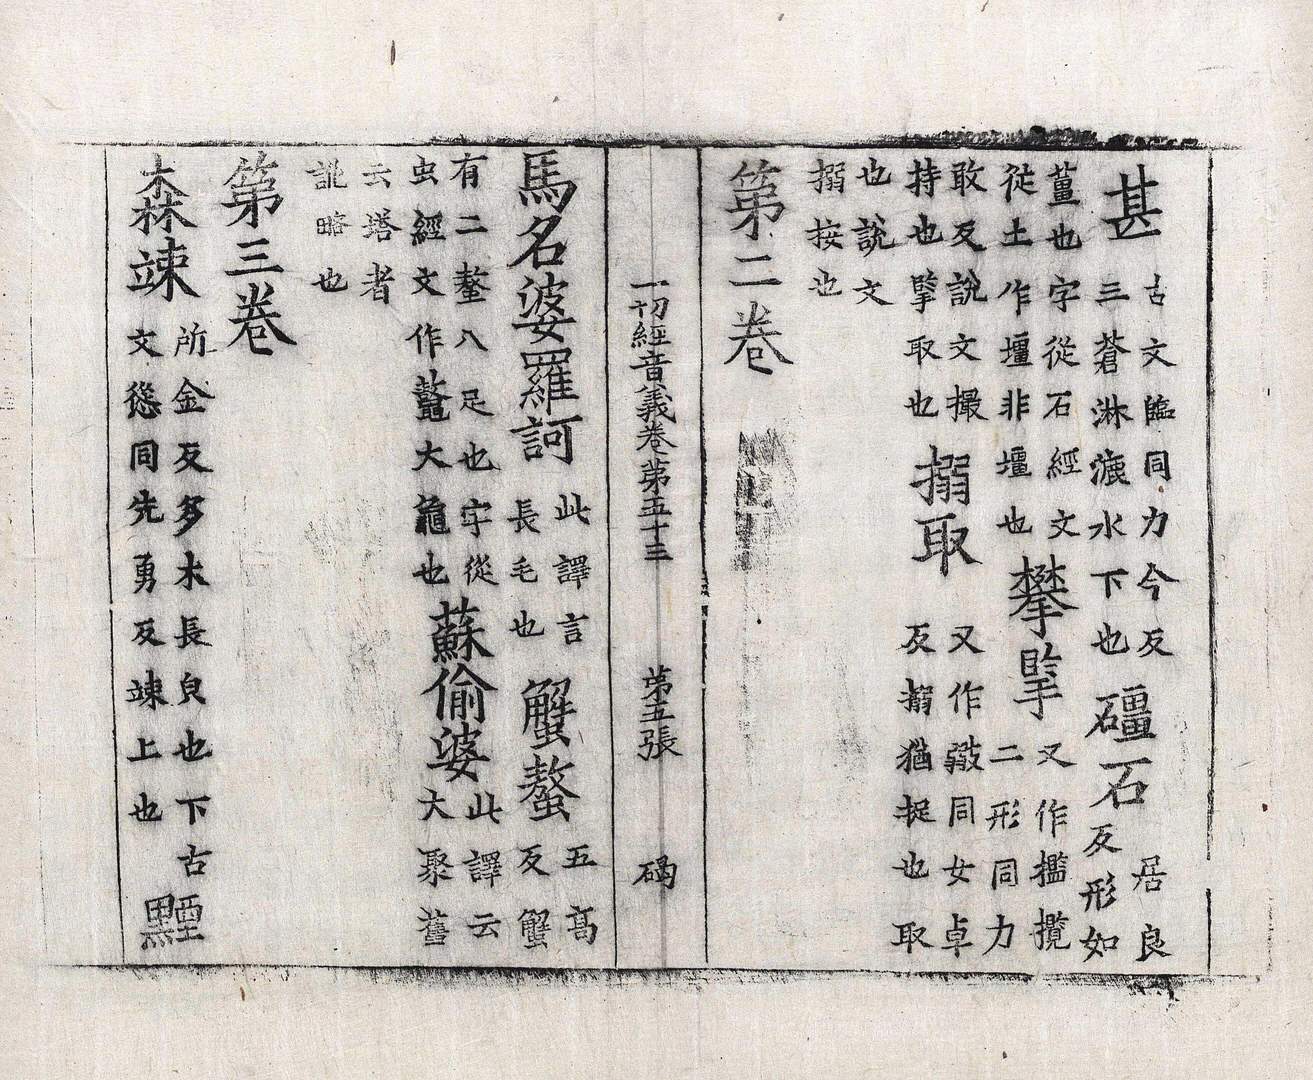 甚古文臨同力今反三蒼淋漉水下也礓石居良反形如
薑也字從石經文從土作壃非壃也攀擥又作㩜攬二形同力
敢反說文撮持也擥取也搦取又作同女卓反搦猶捉也取
也說文搦按也
第二卷
一切經音義卷第五十三 第五張 碣
馬名婆羅訶此譯言長毛也蟹螯五髙反蟹
有二螯八足也字從虫經文作鼇大龜也蘇偷婆此譯云大聚舊
云塔者訛略也
第三卷
森竦所金反多木長皃也下古文慫同先勇反竦上也黫